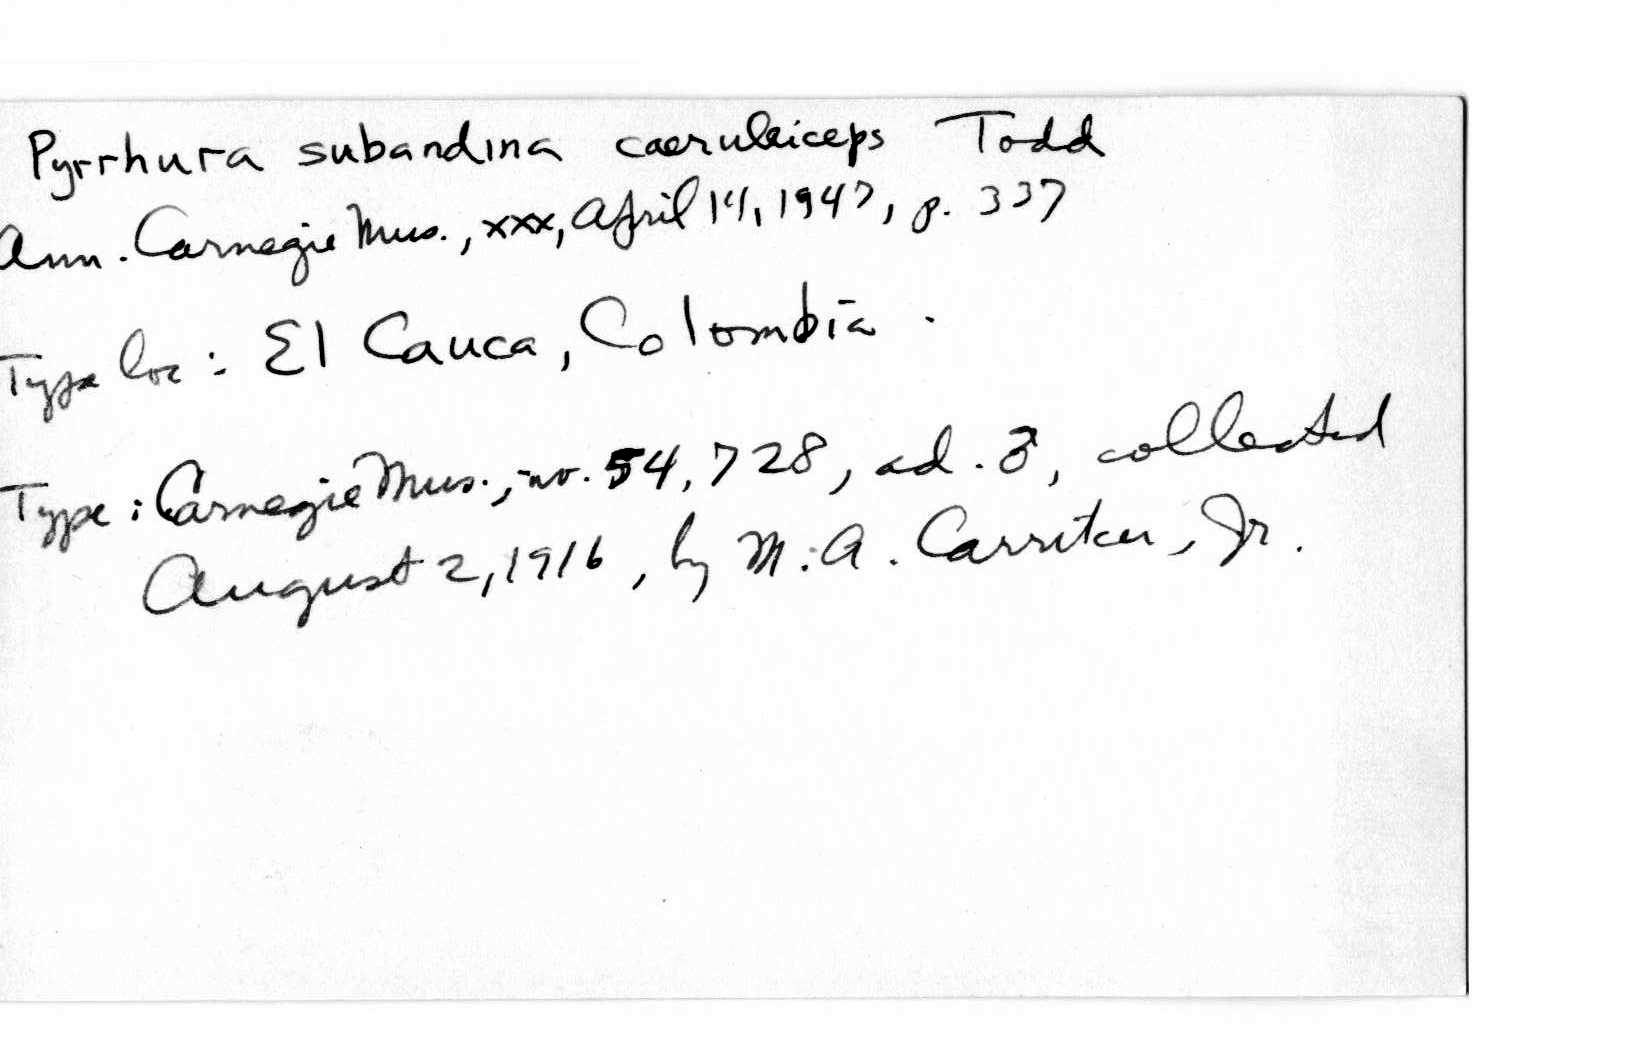 Pyrrhura subandina caeruleiceps Todd
Ann. Carnegie Mus., xxx, April 14, 1947, p. 337
Type loc: El Cauca, Colombia.
Type: Carnegie Mus., no. 54,728, ad. ♂, collected
August 2, 1916, by M. A. Carriker, Jr.